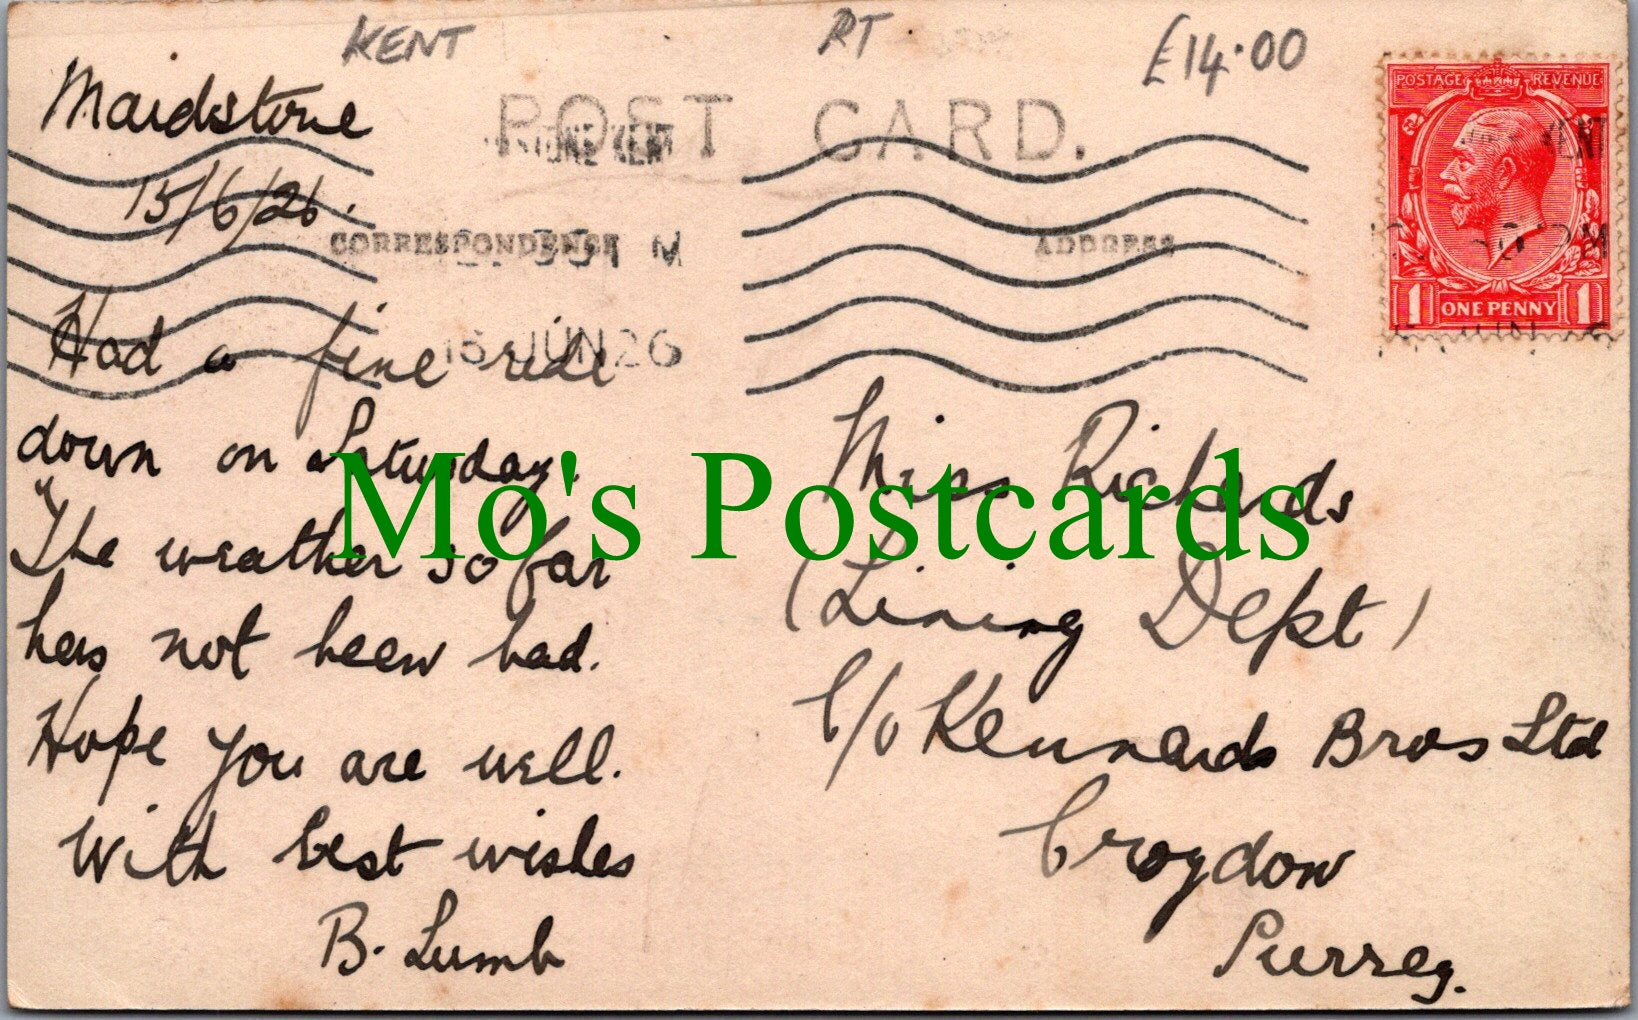 KENT
RT
£14.00
POST CARD.
POSTAGE REVENUE
1 ONE PENNY 1
KENT
CORRESPONDENCE
ADDRESS
15 JUN 26
Maidstone
15/6/26.
Had a fine ride
down on Saturday.
The weather so far
has not been bad.
Hope you are well.
With best wishes
B. Lumb
Miss Richards
(Lining Dept)
C/o Kennards Bros Ltd
Croydon
Surrey.
Mo's Postcards